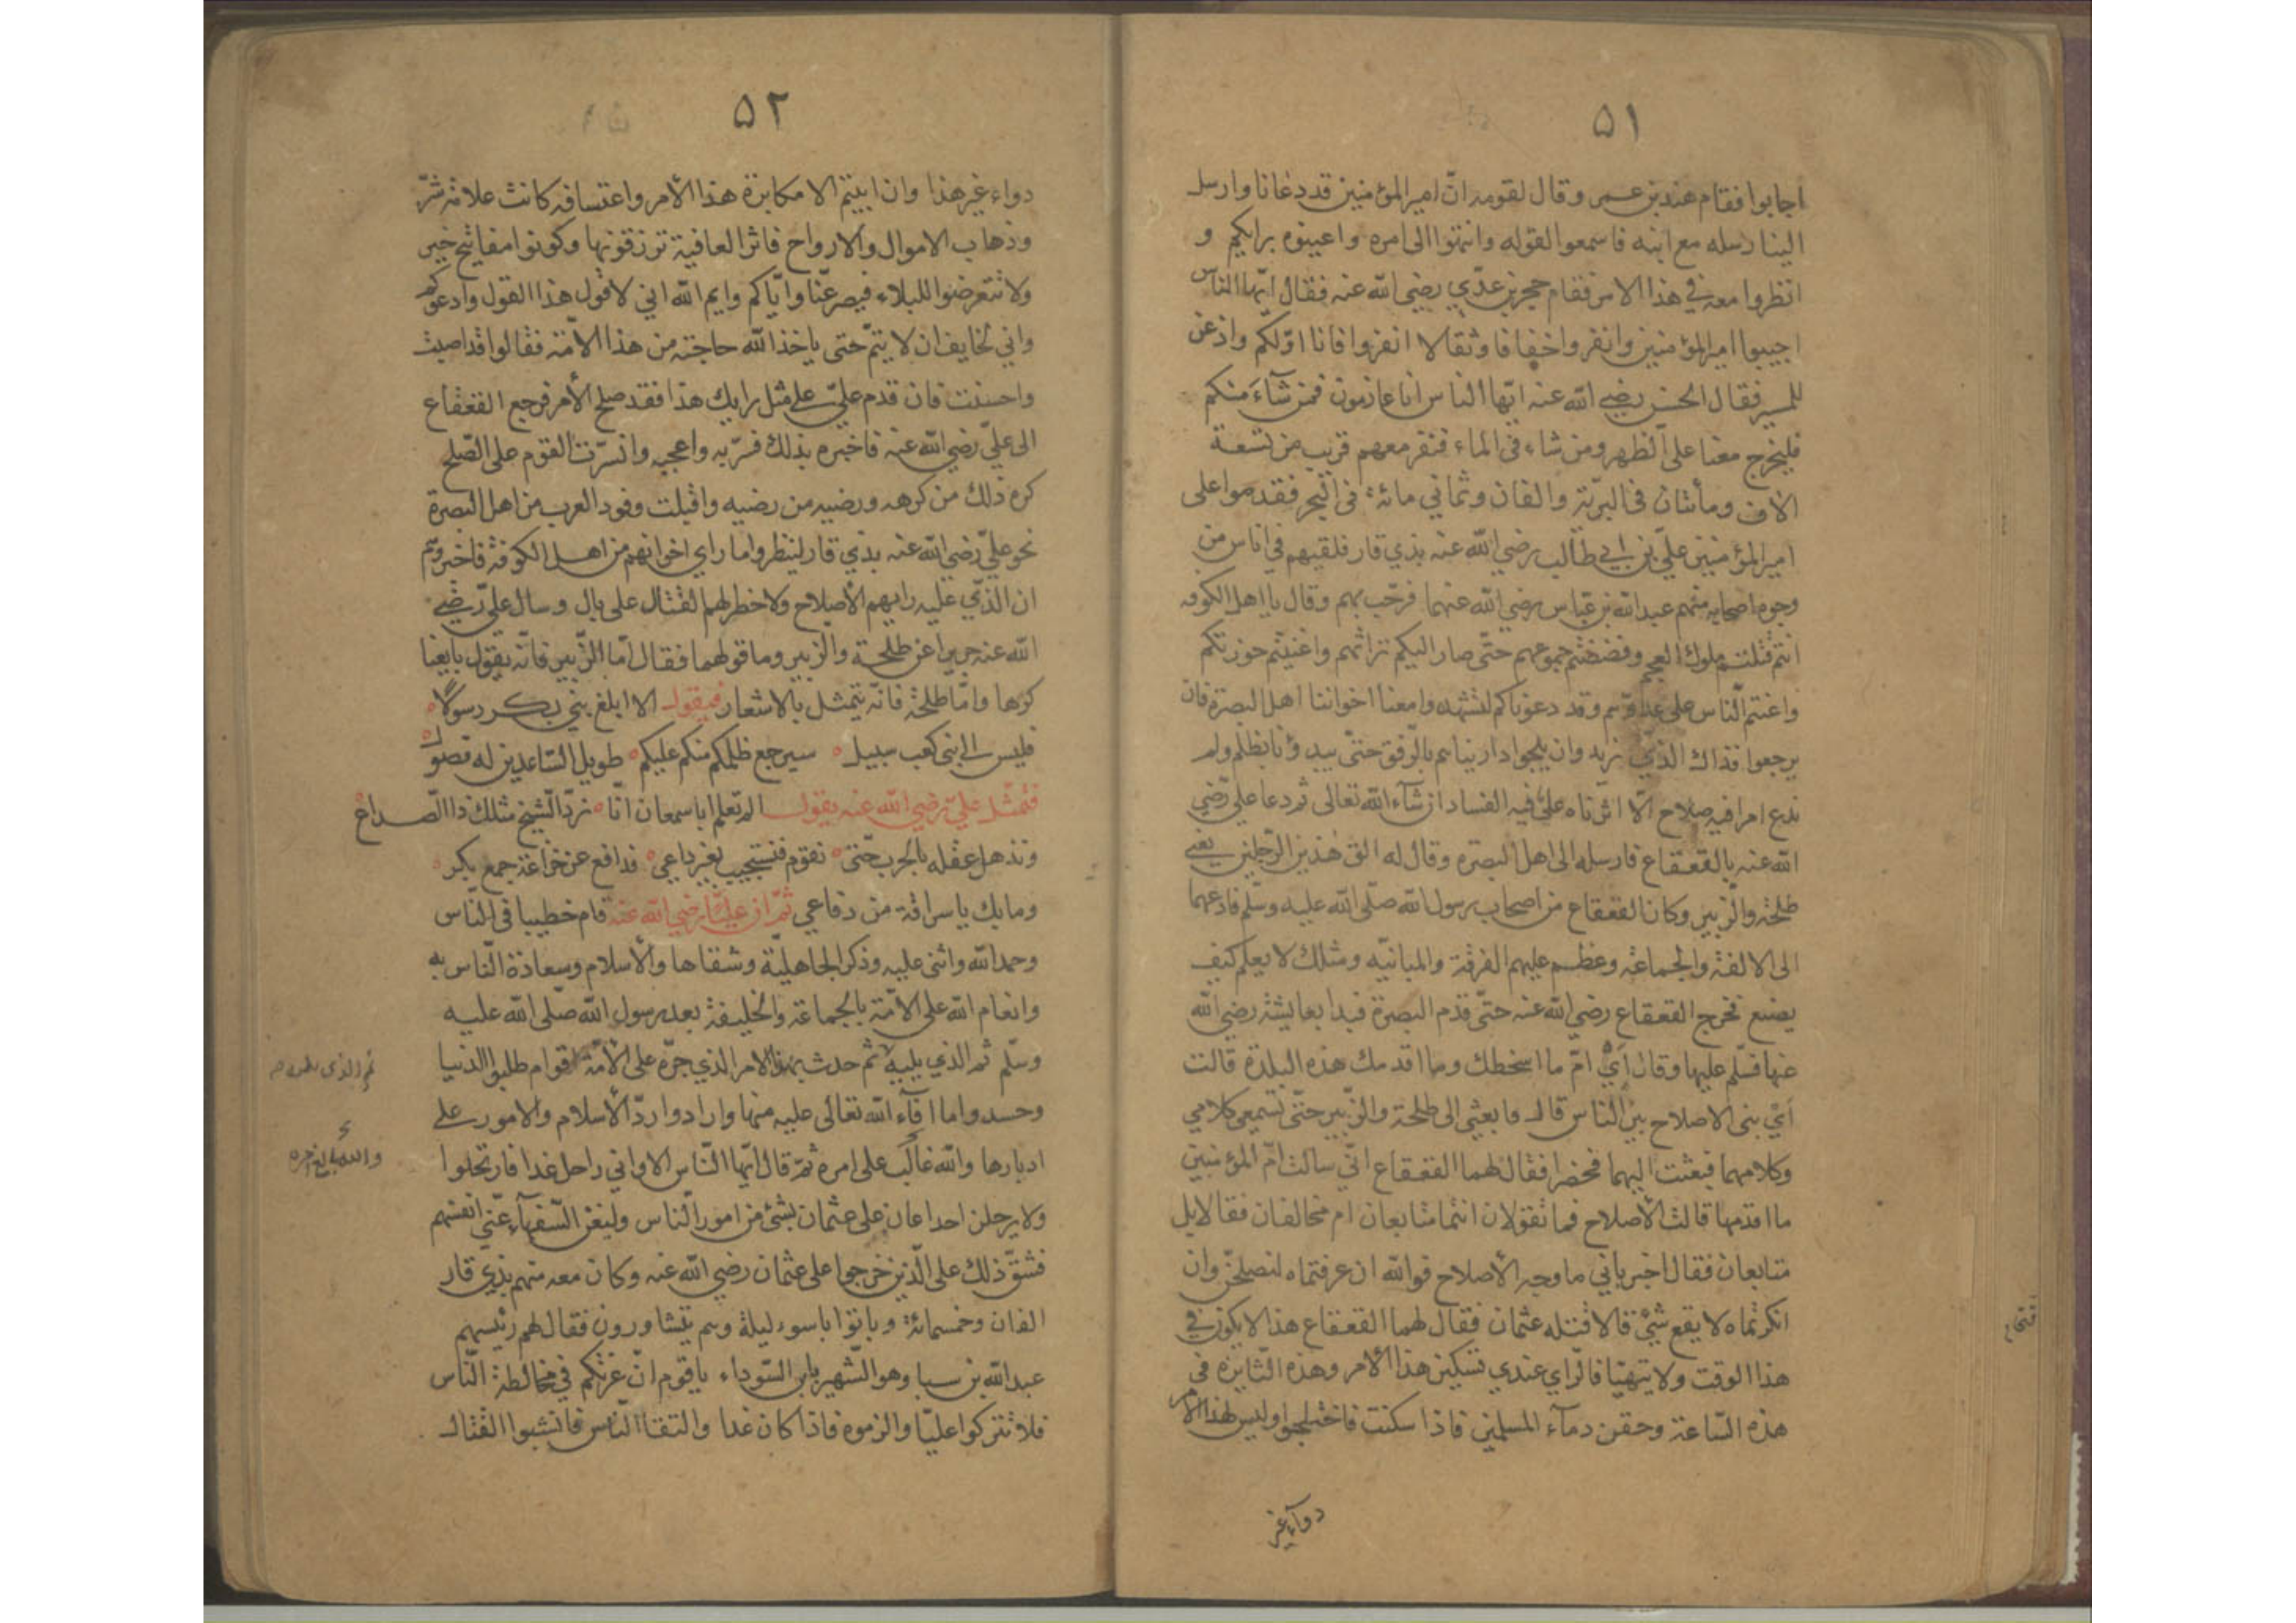 ٥١
اجابوا فقام هند بن عمر وقال لقومه انّ امير المؤمنين قد دعانا وارسل
الينا رسله مع ابنه فاسمعوا لقوله وانتهوا الى امره واعينوه برايكم و
انظروا معه في هذا الامر فقام حجر بن عديّ رضي الله عنه فقال ايّها الناس
اجيبوا امير المؤمنين وانفروا خفافا وثقالا انفروا فانا اوّلكم واذعن
للمسير فقال الحسن رضي الله عنه ايّها الناس انا عازمون فمن شآء منكم
فليخرج معنا على الظهر ومن شاء في الماء فنفر معهم قريب من تسعة
الاف ومأتان في البريّة والفان وثماني مائة في البحر فقدموا على
امير المؤمنين عليّ بن ابي طالب رضي الله عنه بذي قار فلقيهم في اناس من
وجوه اصحابه منهم عبد الله بن عبّاس رضي الله عنهما فرحّب بهم وقال يا اهل الكوفه
انتم قتلتم ملوك العجم وفضضتم جموعهم حتّى صار اليكم تراثهم واغنيتم حوزتكم
واعنتم النّاس على عدوّهم وقد دعوناكم لتشهدوا معنا اخواننا اهل البصرة فان
يرجعوا فذاك الذي نريد وان يلجوا داريناهم بالرّفق حتّى يبدؤنا بظلم ولم
ندع امرا فيه صلاح الّا اثرناه على فيه الفساد ان شآء الله تعالى ثم دعا علي رّضي
الله عنه بالقعقاع فارسله الى اهل البصرة وقال له الق هذين الرّجلين يعني
طلحة والزّبير وكان القعقاع من اصحاب رسول الله صلّى الله عليه وسلّم فادعهما
الى الالفة والجماعة وعظم عليهم الفرقة والمبانيّه ومثلك لا يعلم كيف
يصنع فخرج القعقاع رضي الله عنه حتّى قدم البصرة فبدا بعايشة رضي الله
عنها فسلّم عليها وقال أيْ امّ ما اسخطك وما اقدمك هذه البلدة قالت
أيْ بنى الاصلاح بين النّاس قال فابعثي الى طلحة والزّبير حتّى تسمعي كلامي
وكلامهما فبعثت اليهما فحضرا فقال لهما القعقاع انّي سالت امّ المؤمنين
ما اقدمها قالت الأصلاح فما تقولان انتما متابعان ام مخالفان فقالا بل
متابعان فقال اخبراني ما وجه الأصلاح فوالله ان عرفتماه لنصلحنّ وان
انكرتماه لا يقع شيئ قالا قتله عثمان فقال لهما القعقاع هذا لا يكون في
هذا الوقت ولا يتهيّا فالرّاي عندي تسكين هذا الأمر وهذه الثّايرة في
هذه السّاعة وحقن دمآء المسلمين فاذا سكنت فاختلجوا وليس لهذا الامر
دوآء غير
٥٢
دواء غير هذا وان ابيتم الا مكابرة هذا الأمر واعتسافه كانت علامة شرّ
وذهاب الاموال والارواح فاثرا العافية ترزقونها وكونوا مفاتيح خير
ولا تتعرضوا للبلاء فيصرعنّا وايّاكم وايم الله اني لاقول هذا القول وادعوكم
واني لخايف ان لا يتمّ حتى ياخذ الله حاجته من هذه الامّة فقالوا قد اصبت
واحسنت فان قدم عليّ على مثل رايك هذا فقد صلح الأمر فرجع القعقاع
الى عليّ رضي الله عنه فاخبره بذلك فسّر به واعجبه وانسرّت القوم على الصّلح
كره ذلك من كرهه ورضيه من رضيه واقبلت وفود العرب من اهل البصرة
نحو عليّ رضي الله عنه بذي قار لينظروا ما راي اخوانهم من اهل الكوفة فاخبروهم
ان الذّي عليه رايهم الأصلاح ولا خطر لهم القتال على بال وسال عليّ رضي
الله عنه جريرا عن طلحة والزّبير وما قولهما فقال امّا الزّبير فانّه يقول بايعنا
كرها وامّا طلحة فانّه يتمثل بالاشعار فيقول الا ابلغ بني بكر رسولًا
فليس الى بنى كعب سبيل سيرجع ظلمكم منكم عليكم طويل السّاعدين له فضول
فتمثّل عليّ رضي الله عنه يقول الم تعلم ابا سمعان انّا نردّ الشيخ مثلك ذا الصداع
ونذهل عقله بالحرب حتّى نقوم فنستجيب لغير داعي فدافع عن خزاعة جمع بكر
وما بك يا سراقة من دفاعي ثمّ ان عليّا رضي الله عنه قام خطيبا في النّاس
وحمد الله واثنى عليه وذكر الجاهليّة وشقاها والأسلام وسعادة النّاس به
وانعام الله على الأمّة بالجماعة والخليفة بعد رسول الله صلّى الله عليه
وسلّم ثم الذي يليه ثم حدث بهذا الامر الذي جرّه على الأمّة اقوام طلبوا الدنيا
وحسدوا ما افآء الله تعالى عليه منها وارادوا ردّ الأسلام والامور على
ادبارها والله غالب على امره ثمّ قال ايّها النّاس الا واني راحل غدا فارتحلوا
ولا يرحلن احد اعان على عثمان بشئ من امور النّاس وليغن السّفهآء عنّي انفسهم
فشقّ ذلك على الّذين خرجوا على عثمان رضي الله عنه وكان معه منهم بذي قار
الفان وخمسمائة وباتوا باسوء ليلة وهم يتشاورون فقال لهم رئيسهم
عبد الله بن سبا وهو الشّهير بابن السّوداء يا قوم انّ عزّكم في مخالطة النّاس
فلا تتركوا عليّا والزموه فاذا كان غدا والتقا النّاس فانشبوا القتال
ثم الذي يليه
والله بالغ امره